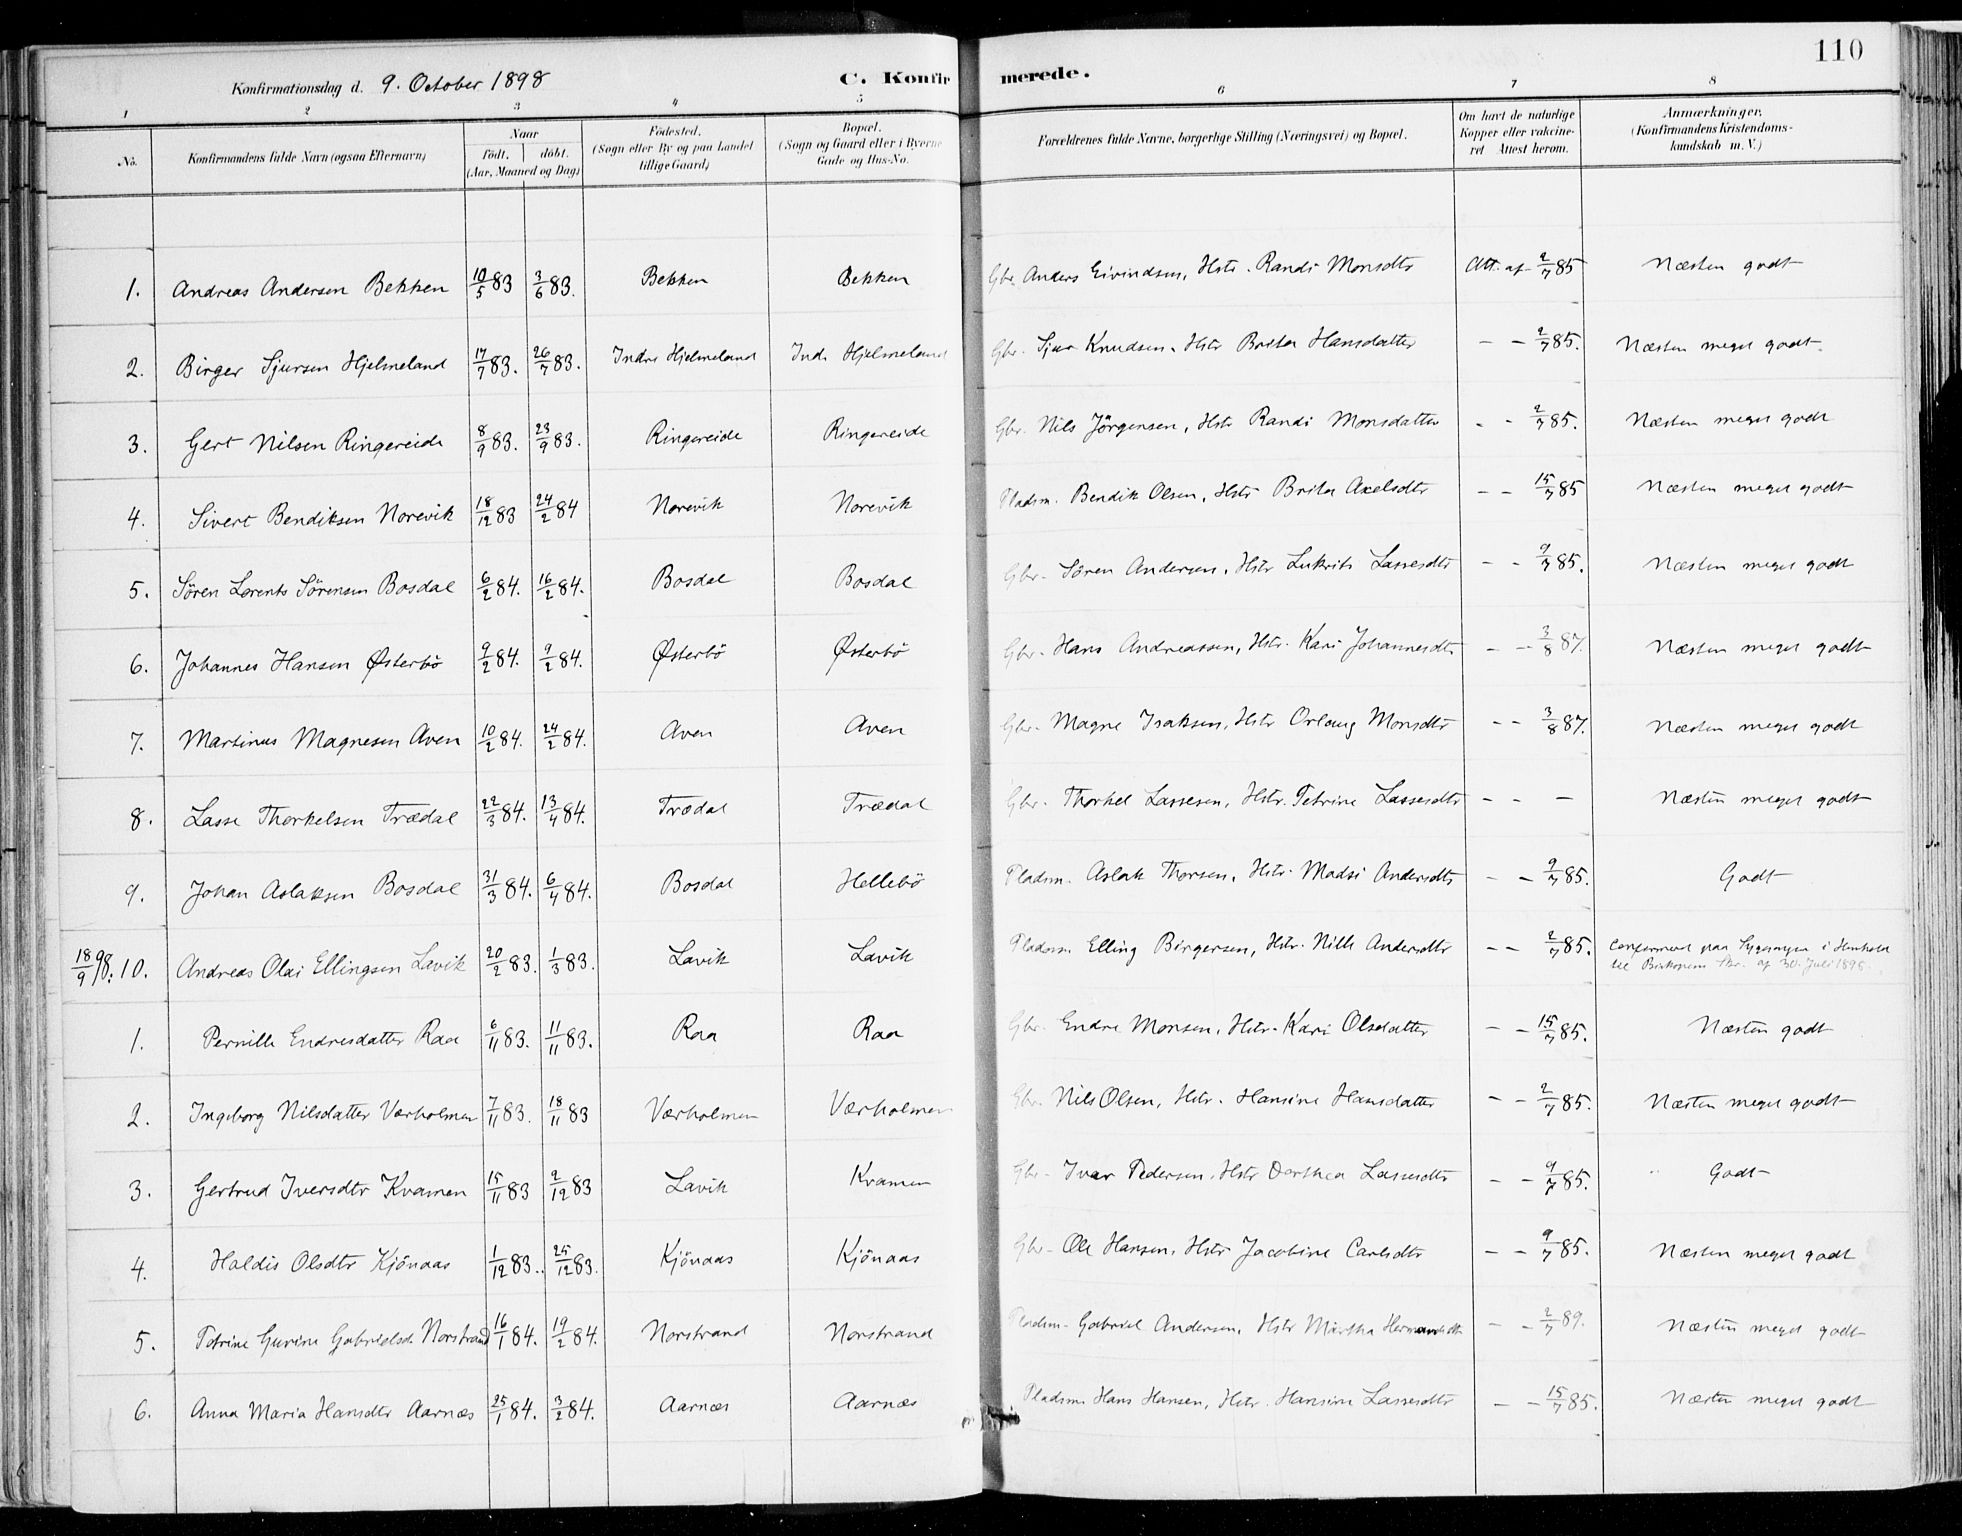 110
Konfirmationsdag d. 9. October 1898 C. Konfirmerede.
1 2 3 4 5 6 7 8
No. Konfirmandens fulde Navn (ogsaa Efternavn) Naar født, døbt. (Aar, Maaned og Dag) Fødested. (Sogn eller By og paa Landet tillige Gaard) Bopæl. (Sogn og Gaard eller i Byerne Gade og Hus-No. Forældrenes fulde Navne, borgerlige Stilling (Næringsvei) og Bopæl. Om havt de naturlige Kopper eller vaccineret Attest herom. Anmærkninger. (Konfirmandens Kristendomskundskab m. V.)
1. Andreas Andersen Bekken 10/5 83 3/6 83. Bekken Bekken Gbr. Anders Eivindsen, Hstr. Randi Monsdtr Att. af 2/7 85 Næsten godt
2. Birger Sjursen Hjelmeland 17/7 83. 26/7 83. Indre Hjelmeland Ind. Hjelmeland Gbr. Sjur Knudsen, Hstr Brita Hansdatter - - 2/7 85. Næsten meget godt.
3. Gert Nilsen Ringereide 8/9 83. 23/9 83. Ringereide Ringereide Gbr. Nils Jörgensen, Hstr Randi Monsdatter - - 2/7 85. Næsten meget godt
4. Sivert Bendiksen Norevik 18/12 83 24/2 84 Norevik Norevik Pladsm. Bendik Olsen, Hstr Brita Axelsdtr - - 15/7 85 Næsten meget godt
5. Sören Lorents Sörensen Bosdal 6/2 84. 16/2 84. Bosdal Bosdal Gbr. Sören Andersen, Hstr Lukrits Lassesdtr - - 9/7 85. Næsten meget godt
6. Johannes Hansen Østerbö 9/2 84. 9/2 84. Østerbö Østerbö Gbr. Hans Andreassen, Hstr. Kari Johannesdtr - - 3/8 87. Næsten meget godt
7. Martinus Magnesen Aven 10/2 84. 24/2 84. Aven Aven Gbr. Magne Isaksen, Hstr Orlaug Monsdtr - - 3/8 87. Næsten meget godt
8. Lasse Thorkelsen Trædal 22/3 84. 13/4 84. Trædal Trædal Gbr. Thorkel Lassesen, Hstr. Petrine Lassesdtr - - - Næsten meget godt
9. Johan Aslaksen Bosdal 31/3 84. 6/4 84. Bosdal Hellebö Pladsm. Aslak Thorsen, Hstr. Madsi Andersdtr - - 9/7 85. Godt
18/9 98. 10. Andreas Olai Ellingsen Lavik 20/2 83. 1/3 83. Lavik Lavik Pladsm. Elling Birgersen, Hstr. Nille Andersdtr - - 2/7 85. confirmeret paa Sygesengen i Henhold
til Biskopens Skr. af 30. Juli 1898.
1. Pernille Endresdatter Raa 6/11 83. 11/11 83. Raa Raa Gbr. Endre Monsen, Hstr. Kari Olsdatter - - 15/7 85. Næsten godt
2. Ingeborg Nilsdatter Værholmen 7/11 83. 18/11 83 Værholmen Værholmen Gbr. Nils Olsen, Hstr. Hansine Hansdatter - - 2/7 85. Næsten meget godt
3. Gertrud Iversdtr Kvamen 15/11 83 2/12 83 Lavik Kvamen Gbr. Ivar Pedersen, Hstr Dorthea Lassesdtr - - 9/7 85. Godt
4. Haldis Olsdtr Kjönaas 1/12 83. 25/12 83. Kjönaas Kjönaas Gbr. Ole Hansen, Hstr Jacobine Carlsdtr - - 9/7 85. Næsten meget godt
5. Petrine Gurine Gabrielsd. Norstrand 16/1 84. 19/2 84. Norstrand Norstrand Pladsm. Gabriel Andersen, Hstr Martha - - 2/7 89. Næsten meget godt
6. Anna Maria Hansdtr Aarnæs 25/1 84. 3/2 84. Aarnæs Aarnæs Pladsm. Hans Hansen, Hstr. Hansine Lassesdtr - - 15/7 85. Næsten meget godt